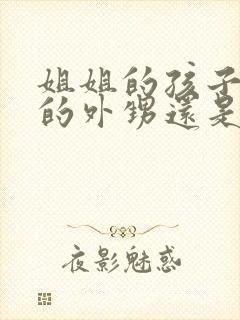 姐姐的孩子
的外甥還是
夜影魅惑